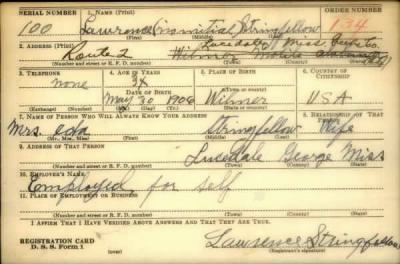 SERIAL NUMBER 1. NAME (Print) ORDER NUMBER
100 Lawrence (no initial) Stringfellow 134
(First) (Middle) (Last)
2. ADDRESS (Print) Lucedale, Miss.
Route 2 Wilmer
(Number and street or R. F. D. number) (Town) (County) (State)
3. TELEPHONE 4. AGE IN YEARS 5. PLACE OF BIRTH 6. COUNTRY OF CITIZENSHIP
none
DATE OF BIRTH Wilmer
May 30 1906 USA
(Exchange) (Number) (Mo.) (Day) (Yr.) (Town or county) (State or country)
7. NAME OF PERSON WHO WILL ALWAYS KNOW YOUR ADDRESS 8. RELATIONSHIP OF THAT PERSON
Mrs. Stringfellow Wife
(Mr., Mrs., Miss) (First) (Middle) (Last)
9. ADDRESS OF THAT PERSON
Lucedale George Miss
(Number and street or R. F. D. number) (Town) (County) (State)
10. EMPLOYER'S NAME
Employed for self
11. PLACE OF EMPLOYMENT OR BUSINESS
(Number and street or R. F. D. number) (Town) (County) (State)
I AFFIRM THAT I HAVE VERIFIED ABOVE ANSWERS AND THAT THEY ARE TRUE.
REGISTRATION CARD
D. S. S. Form 1 (over) Lawrence Stringfellow
(Registrant's signature)